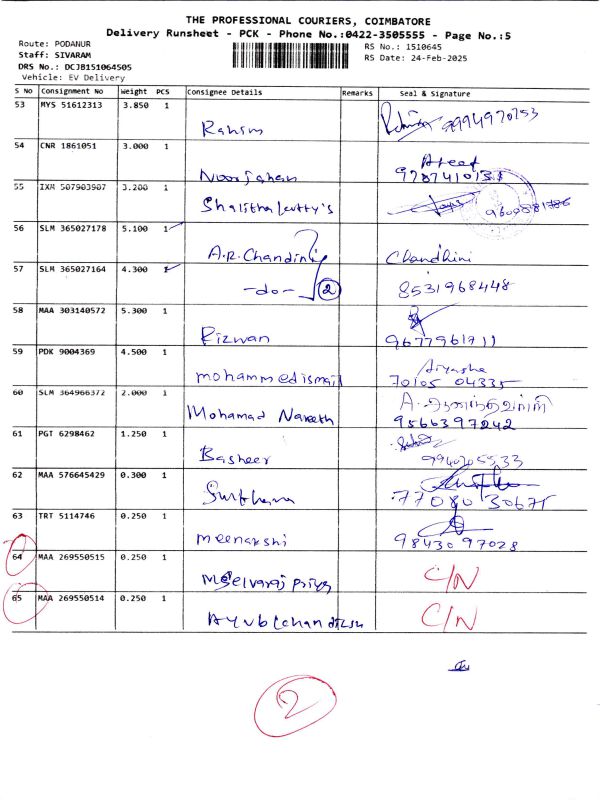 THE PROFESSIONAL COURIERS, COIMBATORE
Delivery Runsheet - PCK - Phone No.:0422-3505555 - Page No.:5
Route: PODANUR
Staff: SIVARAM
DRS No.: DCJB151064505
Vehicle: EV Delivery
RS No.: 1510645
RS Date: 24-Feb-2025
S No Consignment No Weight PCS Consignee Details Remarks Seal & Signature
53 MYS 51612313 3.850 1
Rahim 9994970253
54 CNR 1861051 3.000 1
Noorjahan 
55 IXM 507903907 3.200 1
56 SLM 365027178 5.100 1
A.R. Chandini Chandhini
57 SLM 365027164 4.300 1
-do- 2 8531968448
58 MAA 303140572 5.300 1
Rizwan 9677961711
59 PDK 9004369 4.500 1
mohammed ismail 70105 04335
60 SLM 364966372 2.000 1
Mohamad 9566397242
61 PGT 6298462 1.250 1
Basheer
62 MAA 576645429 0.300 1
77080 30675
63 TRT 5114746 0.250 1
meenakshi 98430 97028
64 MAA 269550515 0.250 1
C/N
65 MAA 269550514 0.250 1
C/N
2